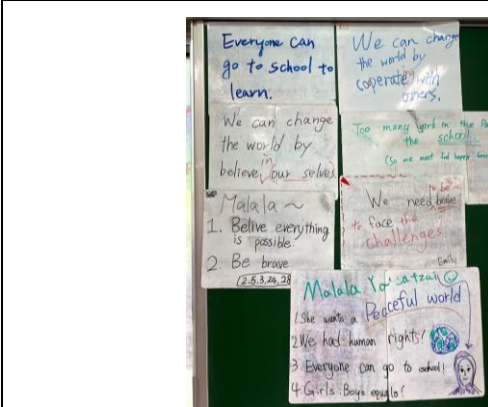 Everyone can
go to school to
learn.
We can change
the world by
coperate with
others.
We can change
the world by
in
believe our selves
Too many work in the
the school
Malala ~
1. Belive everything
is possible
2. Be brave
We need to be brave
to face the
challenges
Emily
Malala
1 She wants a Peaceful world
2 We had human rights!
3 Everyone can go to school!
4 Girls Boys